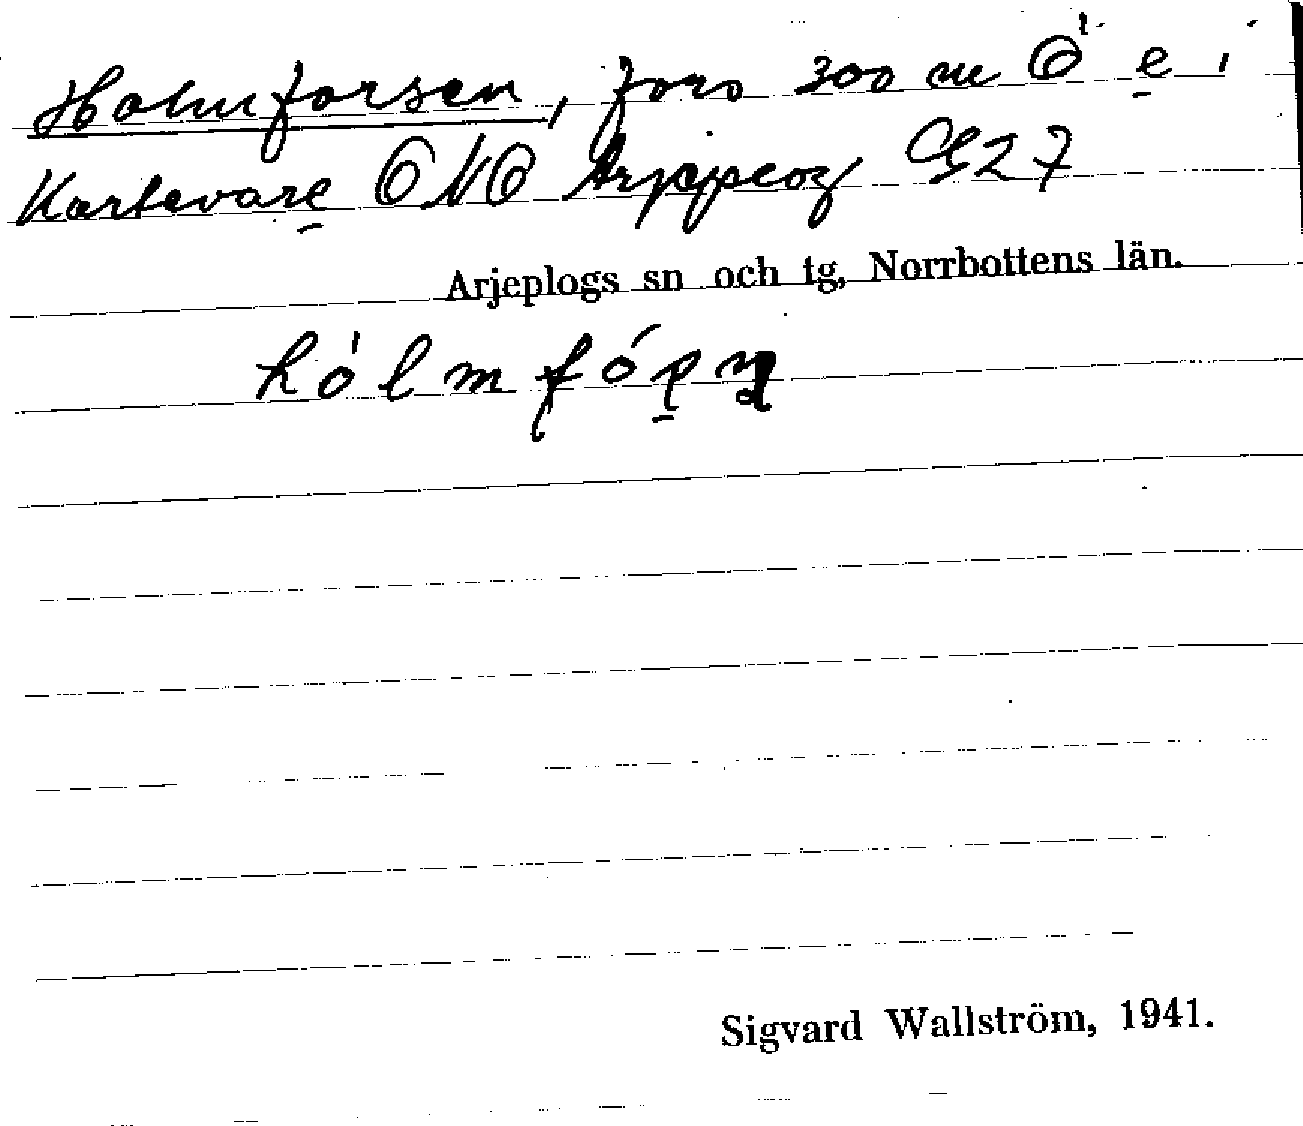 Holmforsen, fors 300 m Ö e.
Kartevare ONO Arjeplog G27
Arjeplogs sn och tg, Norrbottens län.
hólmfóṣṇ
Sigvard Wallström, 1941.